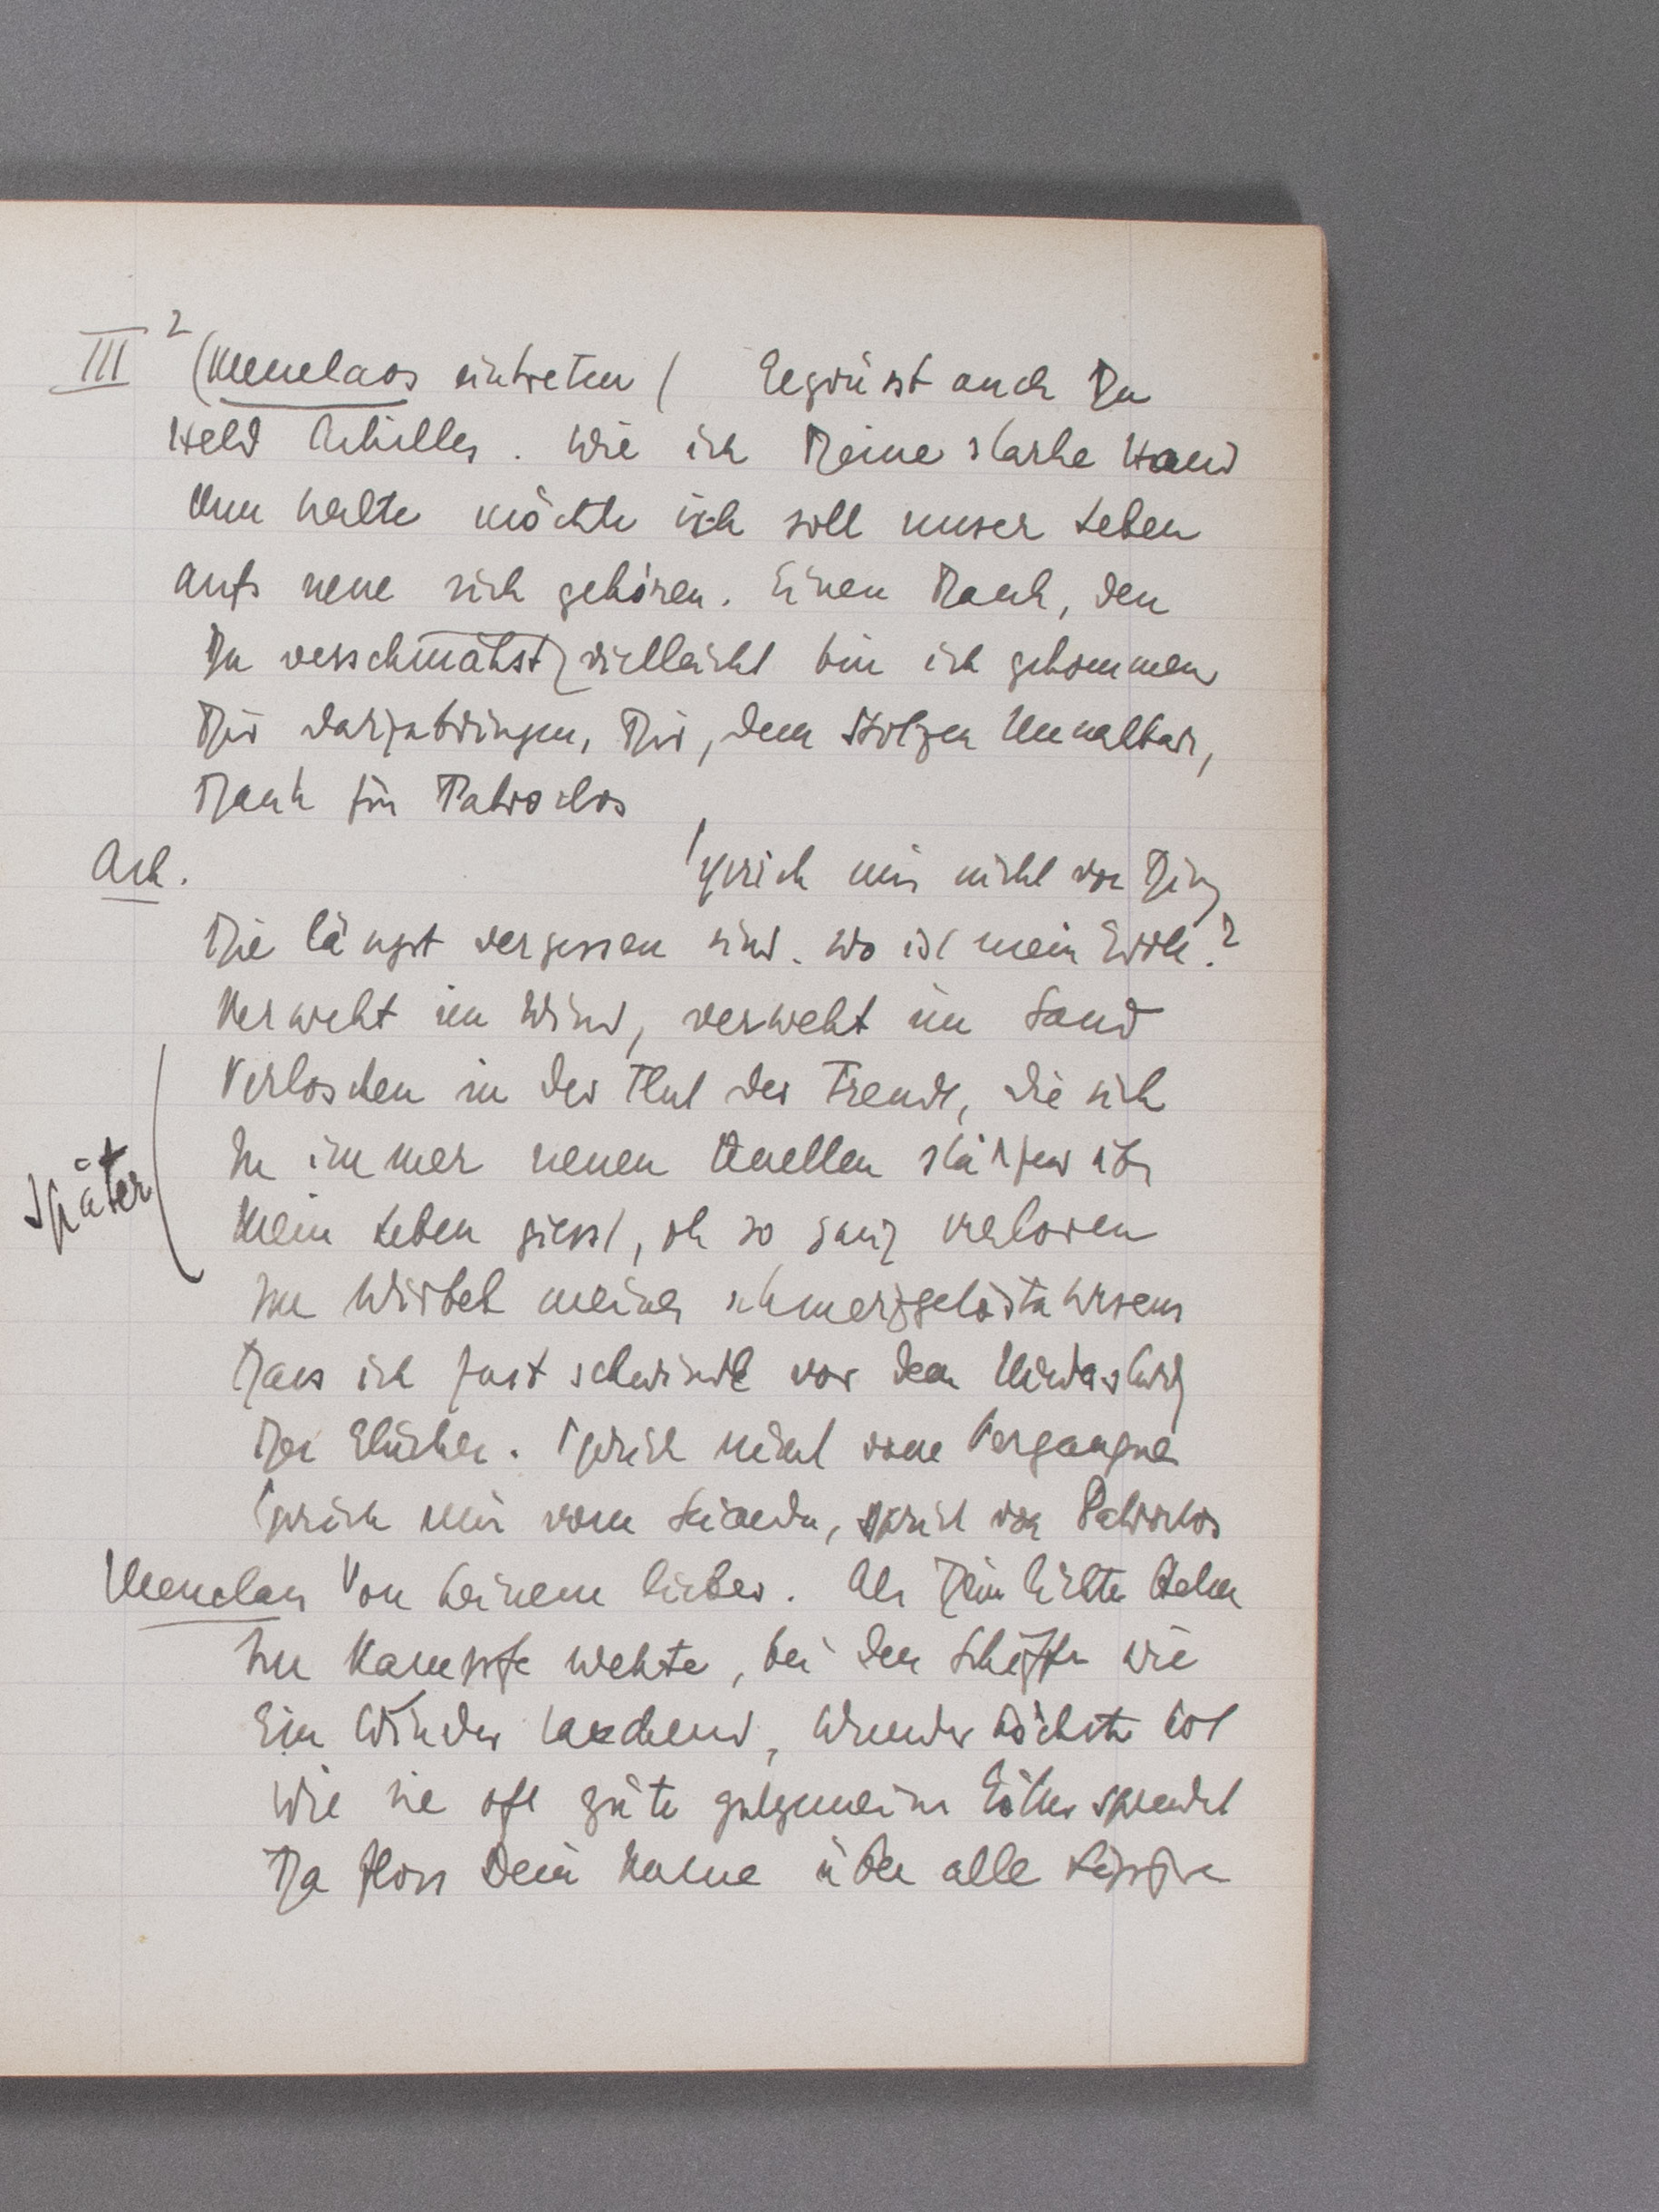 III 2 (Menelaos eintreten) Gegrüsst auch Du
Held Achilles. Wie ich Deine starke Hand
Nun halte möchte ich soll unser Leben
Aufs neue sich gehören. Einen Dank, den
Du verschmähst vielleicht bin ich gekommen
Dir darzubringen, Dir, dem stolzen
Dank für Patroclos
Ach. Sprich mir nicht von Ding
Die längst vergessen sind. Wo ist mein Groll?
Verweht im Wind, verweht im Sand
Verloschen in der Flut der Freude, die sich
In immer neuen Quellen
später
Mein Leben giesst, oh so ganz verloren
Im Wirbel meines schmerzgelösten Wesens
Dass ich fast schwindle vor dem
Der Glücke. Sprich nicht vom Vergangnen
Sprich mir vom Seienden, sprich von Patroclos
Menelaos Von Deinem lieber. Als Dein lichter Helm
Im Kampfe wehte, bei den Schiffen wie
Ein Wunder lachend, Wunder höchster Art
Wie sie oft gute Götter spendet
Da floss Dein Name über alle Lippen